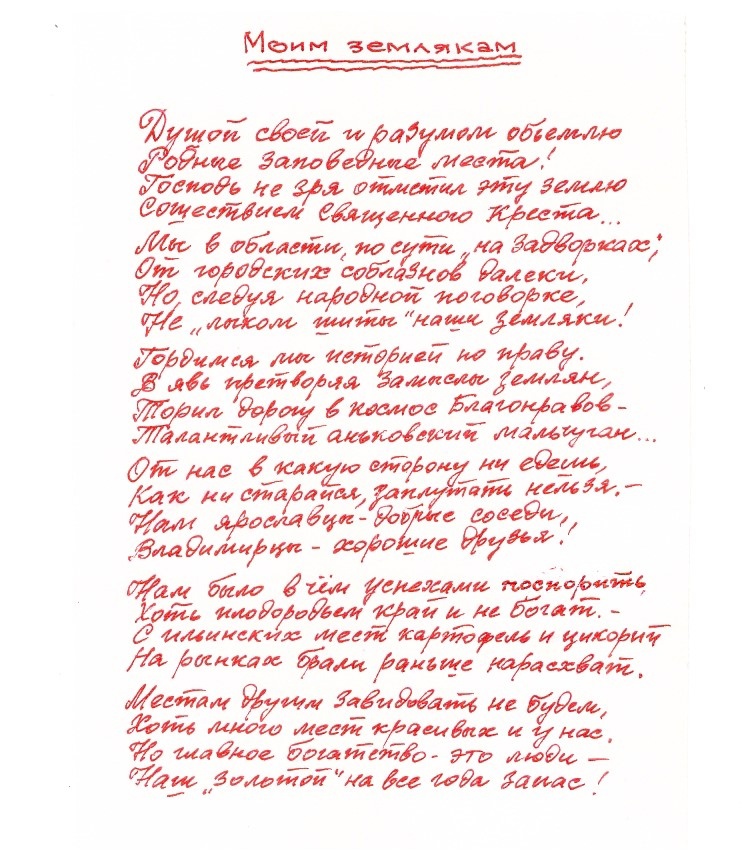 Моим землякам
Душой своей и разумом объемлю
Родные заповедные места!
Господь не зря отметил эту землю
Сошествием Священного Креста...
Мы в области, по сути, „на задворках",
От городских соблазнов далеки,
Но, следуя народной поговорке,
Не „лыком шиты" наши земляки!
Гордимся мы историей по праву.
В явь претворяя замыслы землян,
Торил дорогу в космос Благонравов -
Талантливый аньковский мальчуган...
От нас в какую сторону ни едешь,
Как ни старайся, заплутать нельзя. -
Нам ярославцы - добрые соседи,
Владимирцы - хорошие друзья!
Нам было в чём успехами поспорить,
Хоть плодородьем край и не богат. -
С ильинских мест картофель и цикорий
На рынках брали раньше нарасхват.
Местам другим завидовать не будем,
Хоть много мест красивых и у нас.
Но главное богатство - это люди —
Наш „золотой" на все года запас!